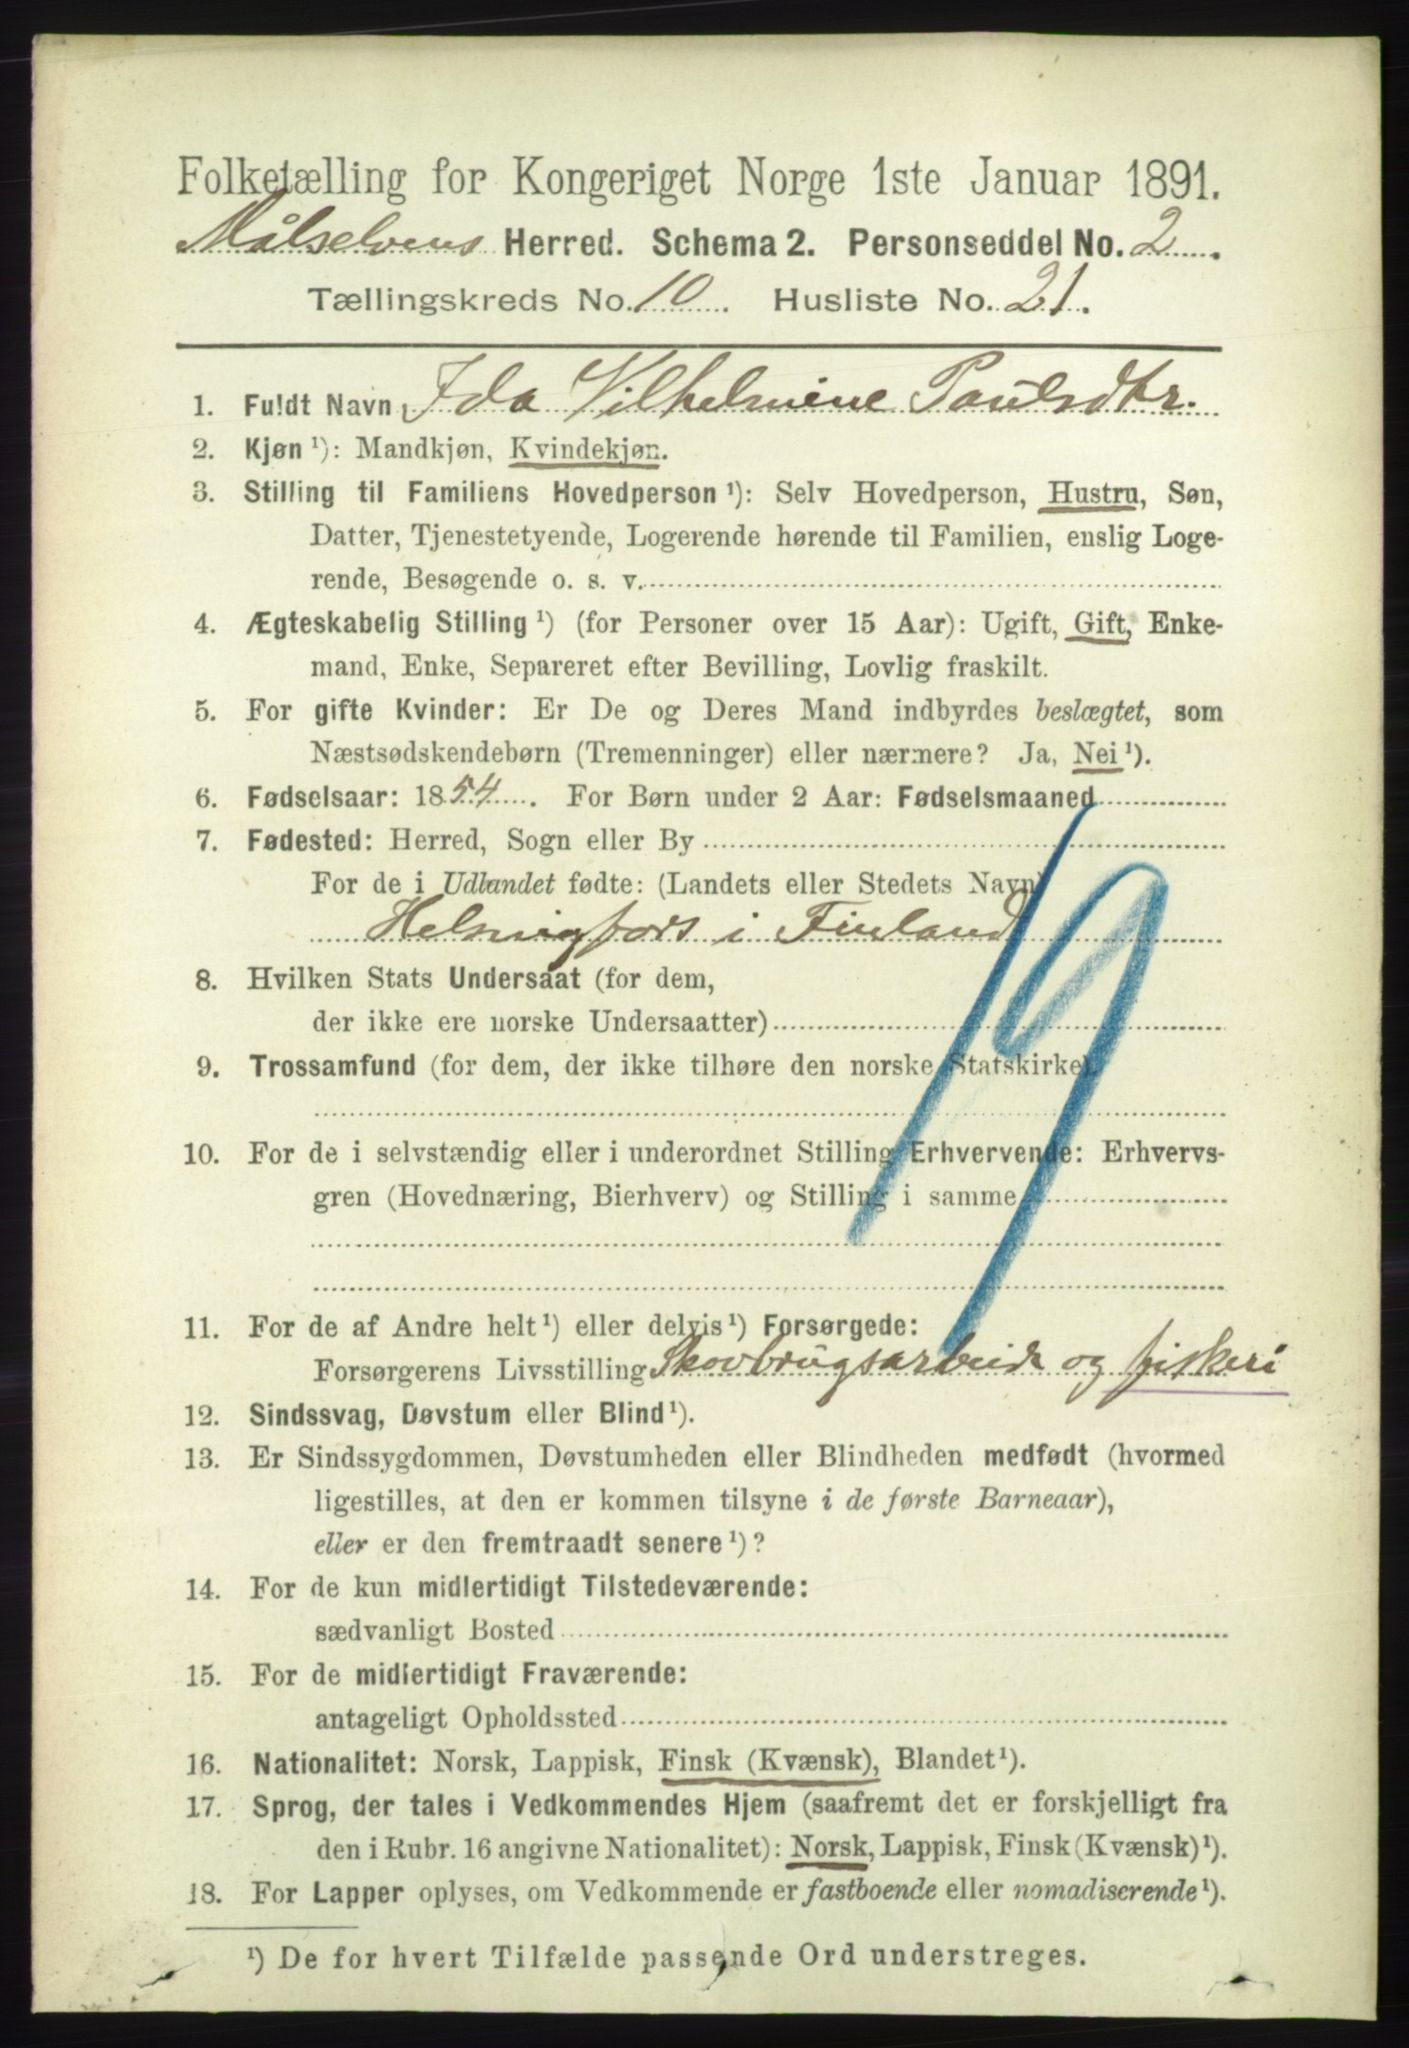 Folketælling for Kongeriget Norge 1ste Januar 1891.
Målselvens Herred. Schema 2. Personseddel No. 2.
Tællingskreds No. 10. Husliste No. 21.
1. Fuldt Navn Ida Vilhelmine Paulsdtr.
2. Kjøn ¹): Mandkjøn, Kvindekjøn.
3. Stilling til Familiens Hovedperson ¹): Selv Hovedperson, Hustru, Søn,
Datter, Tjenestetyende, Logerende hørende til Familien, enslig Loge-
rende, Besøgende o. s. v.
4. Ægteskabelig Stilling ¹) (for Personer over 15 Aar): Ugift, Gift, Enke-
mand, Enke, Separeret efter Bevilling, Lovlig fraskilt.
5. For gifte Kvinder: Er De og Deres Mand indbyrdes beslægtet, som
Næstsødskendebørn (Tremenninger) eller nærmere? Ja, Nei ¹).
6. Fødselsaar: 1854. For Børn under 2 Aar: Fødselsmaaned
7. Fødested: Herred, Sogn eller By
For de i Udlandet fødte: (Landets eller Stedets Navn)
Helsingfors i Finland
8. Hvilken Stats Undersaat (for dem,
der ikke ere norske Undersaatter)
9. Trossamfund (for dem, der ikke tilhøre den norske Statskirke).
10. For de i selvstændig eller i underordnet Stilling Erhvervende: Erhvervs-
gren (Hovednæring, Bierhverv) og Stilling i samme
11. For de af Andre helt ¹) eller delvis ¹) Forsørgede:
Forsørgerens Livsstilling Skovbrugsarbeide og fiskeri
12. Sindssvag, Døvstum eller Blind ¹).
13. Er Sindssygdommen, Døvstumheden eller Blindheden medfødt (hvormed
ligestilles, at den er kommen tilsyne i de første Barneaar),
eller er den fremtraadt senere ¹)?
14. For de kun midlertidigt Tilstedeværende:
sædvanligt Bosted
15. For de midlertidigt Fraværende:
antageligt Opholdssted
16. Nationalitet: Norsk, Lappisk, Finsk (Kvænsk), Blandet ¹).
17. Sprog, der tales i Vedkommendes Hjem (saafremt det er forskjelligt fra
den i Rubr. 16 angivne Nationalitet): Norsk, Lappisk, Finsk (Kvænsk) ¹).
18. For Lapper oplyses, om Vedkommende er fastboende eller nomadiserende ¹).
¹) De for hvert Tilfælde passende Ord understreges.